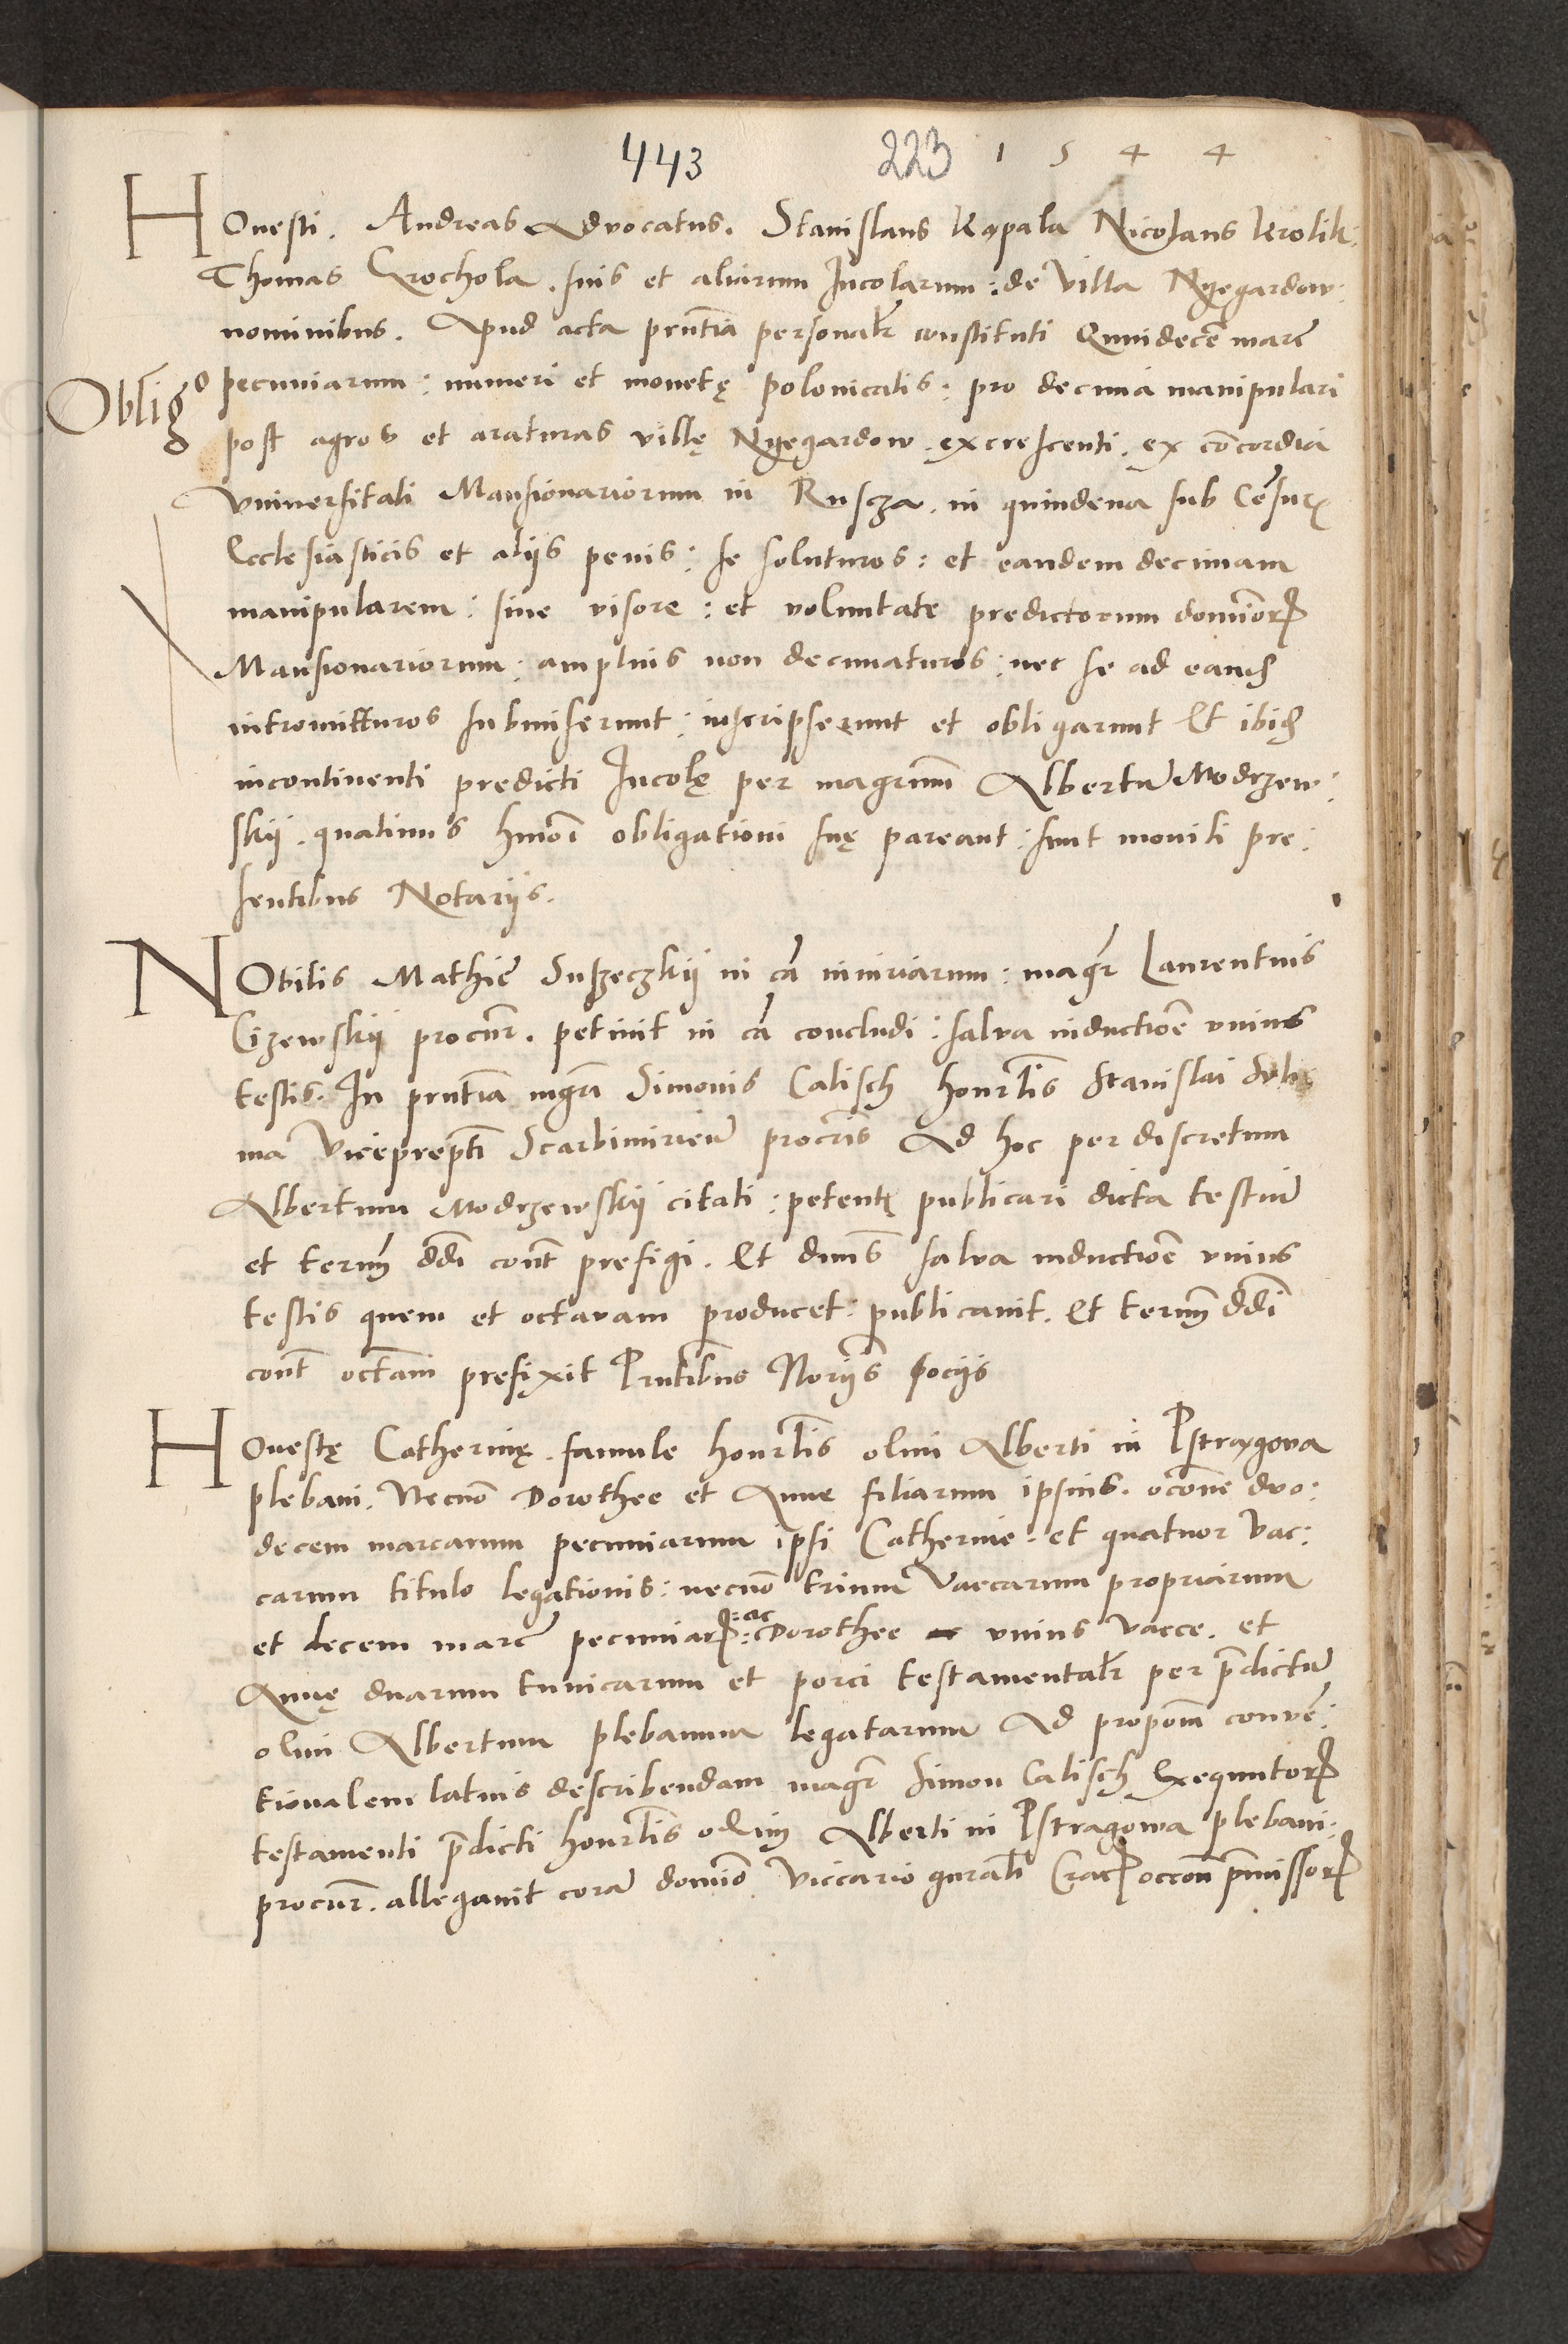 443 223 1544
Honesti. Andreas Advocatus. Stanislaus Kopala Nicolaus Krolik:
Thomas Grochola. suis et aliarum Incolarum: de Villa Nyegardow:
nominibus. Apud acta pñtia personalr̃ constituti Quindecẽ marc̃
Obligo
pecuniarum: numeri et monetę polonicalis: pro decima manipulari
post agros et araturas villę Nyegardow. excrescenti. ex cõcordia
Vniuersitati Mansionariorum in Ruscza. in quindena sub Cẽsur̃
Ecclesiasticis et alijs penis: se soluturos: et eandem decimam
manipularem: sine visore: et voluntate predictorum dominor̃
Mansionariorum: amplius non decimaturos: nec se ad eand̃
intromissuros submiserunt: inscripserunt et obligarunt Et ibid̃
incontinenti predicti Incolę per magr̃um Albertũ Modrzew:
skij. quatinus hmõi obligationi suę pareant: sunt moniti pre:
sentibus Notarijs.
Nobilis Mathie Suszeczkij in cã iniuriarum: magr̃ Laurentius
Cizewskij procur̃. petiuit in cã concludi: salua inductiõe vnius
testis. In pñtia mgr̃i Simonis Calisch honor̃lis Stanislai
ma Viceprep̃ti Scarbimirieñ procr̃is Ad hoc per discretum
Albertum Modrzewskij citati: petentis publicari dicta testiũ
et termñ ddi̅ cont̃ prefigi. Et dñus salua inductiõe vnius
testis quem et octauam producet: publicauit. Et termñ ddi̅
cont̃ octauam prefixit Pñtibus Nõrijs sociis
Honestę Catherinę. famule honor̃lis olim Alberti in Pstragowa
plebani. Necnõ Dorothee et Anne filiarum ipsius. occõne duo:
decem marcarum pecuniarum ipsi Catherine: et quatuor vac:
carum titulo legationis: necnõ trium Vaccarum propriarum
et decem marc̃ pecuniar̃: ac Dorothee vnius vacce. et
Annę duarum tunicarum et porci testamentalr̃ per p̃dictũ
olim Albertum plebanum legatarum Ad propõem conuẽ:
tionalem latius describendam magr̃ Simon Calisch Exequutor̃
testamenti p̃dicti honor̃lis olim Alberti in Pstragowa plebani:
procur̃. allegauit corã domino Viccario gñrali Crac̃ occõn p̃missor̃